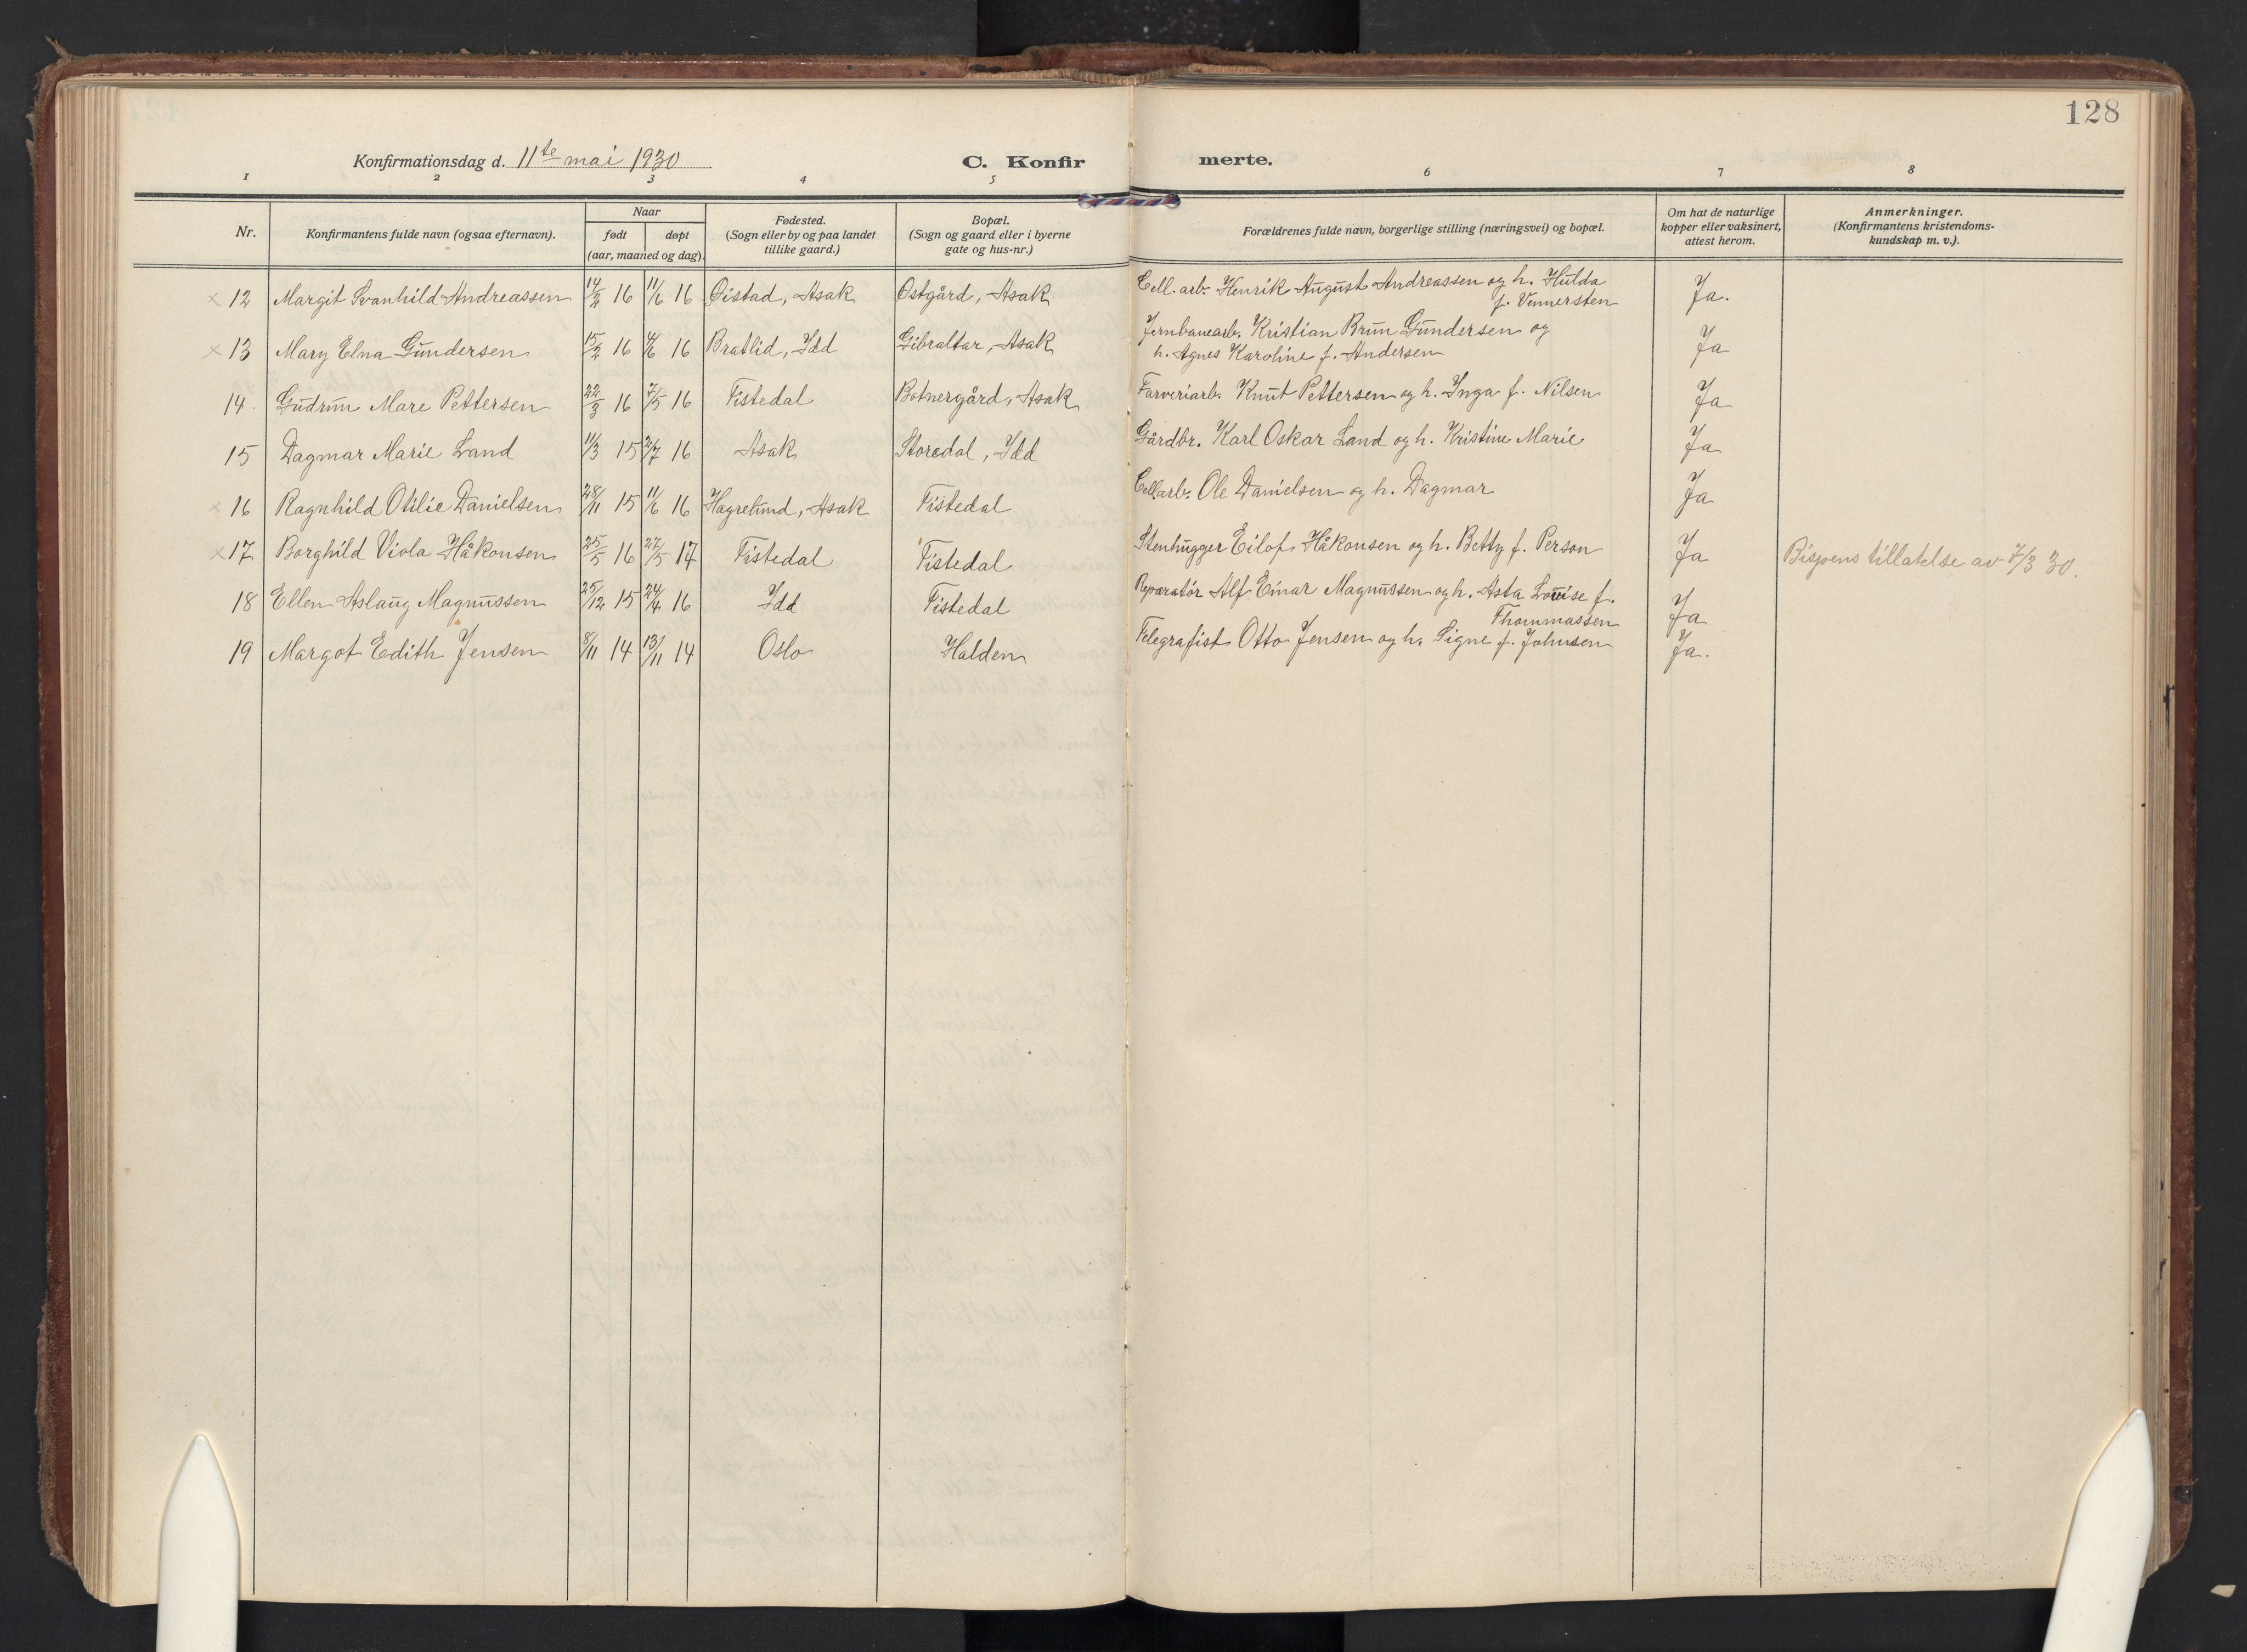 128
Konfirmationsdag d. 11te mai 1930
C. Konfir merte.
1 2 3 4 5 6 7 8
Nr.
Konfirmantens fulde navn (ogsaa efternavn).
Naar
født døpt
(aar, maaned og dag).
Fødested.
(Sogn eller by og paa landet
tillike gaard.)
Bopæl.
(Sogn og gaard eller i byerne
gate og hus-nr.)
Forældrenes fulde navn, borgerlige stilling (næringsvei) og bopæl.
Om hat de naturlige
kopper eller vaksinert,
attest herom.
Anmerkninger.
(Konfirmantens kristendoms-
kundskap m. v.).
× 12 Margit Svanhild Andreassen 14/2 16 11/6 16 Øistad, Asak Østgård, Asak Cell. arb. Henrik August Andreassen og h. Hulda Ja.
f. Vennersten
× 13 Mary Elna Gundersen 15/2 16 4/6 16 Bratlid, Idd Gibraltar, Asak Jernbanearb. Kristian Brun Gundersen og Ja
h. Agnes Karoline f. Andersen
14. Gudrun Mare Pettersen 22/3 16 7/5 16 Tistedal Botnergård, Asak Farveriarb. Knut Pettersen og h. Inga f. Nilsen Ja
15 Dagmar Marie Land 11/3 15 2/7 16 Asak Storedal, Idd Gårdbr. Karl Oskar Land og h. Kristine Marie Ja
× 16 Ragnhild Otilie Danielsen 28/11 15 11/6 16 Hagrelund, Asak Tistedal Cellarb. Ole Danielsen og h. Dagmar Ja
× 17 Borghild Viola Håkonsen 25/5 16 27/5 17 Tistedal Tistedal Stenhugger Eilof Håkonsen og h. Betty f. Person Ja Bispens tillatelse av 7/3 30.
18 Ellen Aslaug Magnussen 25/12 15 24/4 16 Idd Tistedal Reparatør Alf Einar Magnussen og h. Asta Louise f. Ja
Thommassen
19 Margot Edith Jensen 8/11 14 13/11 14 Oslo Halden Telegrafist Otto Jensen og h. Signe f. Johnsen Ja.